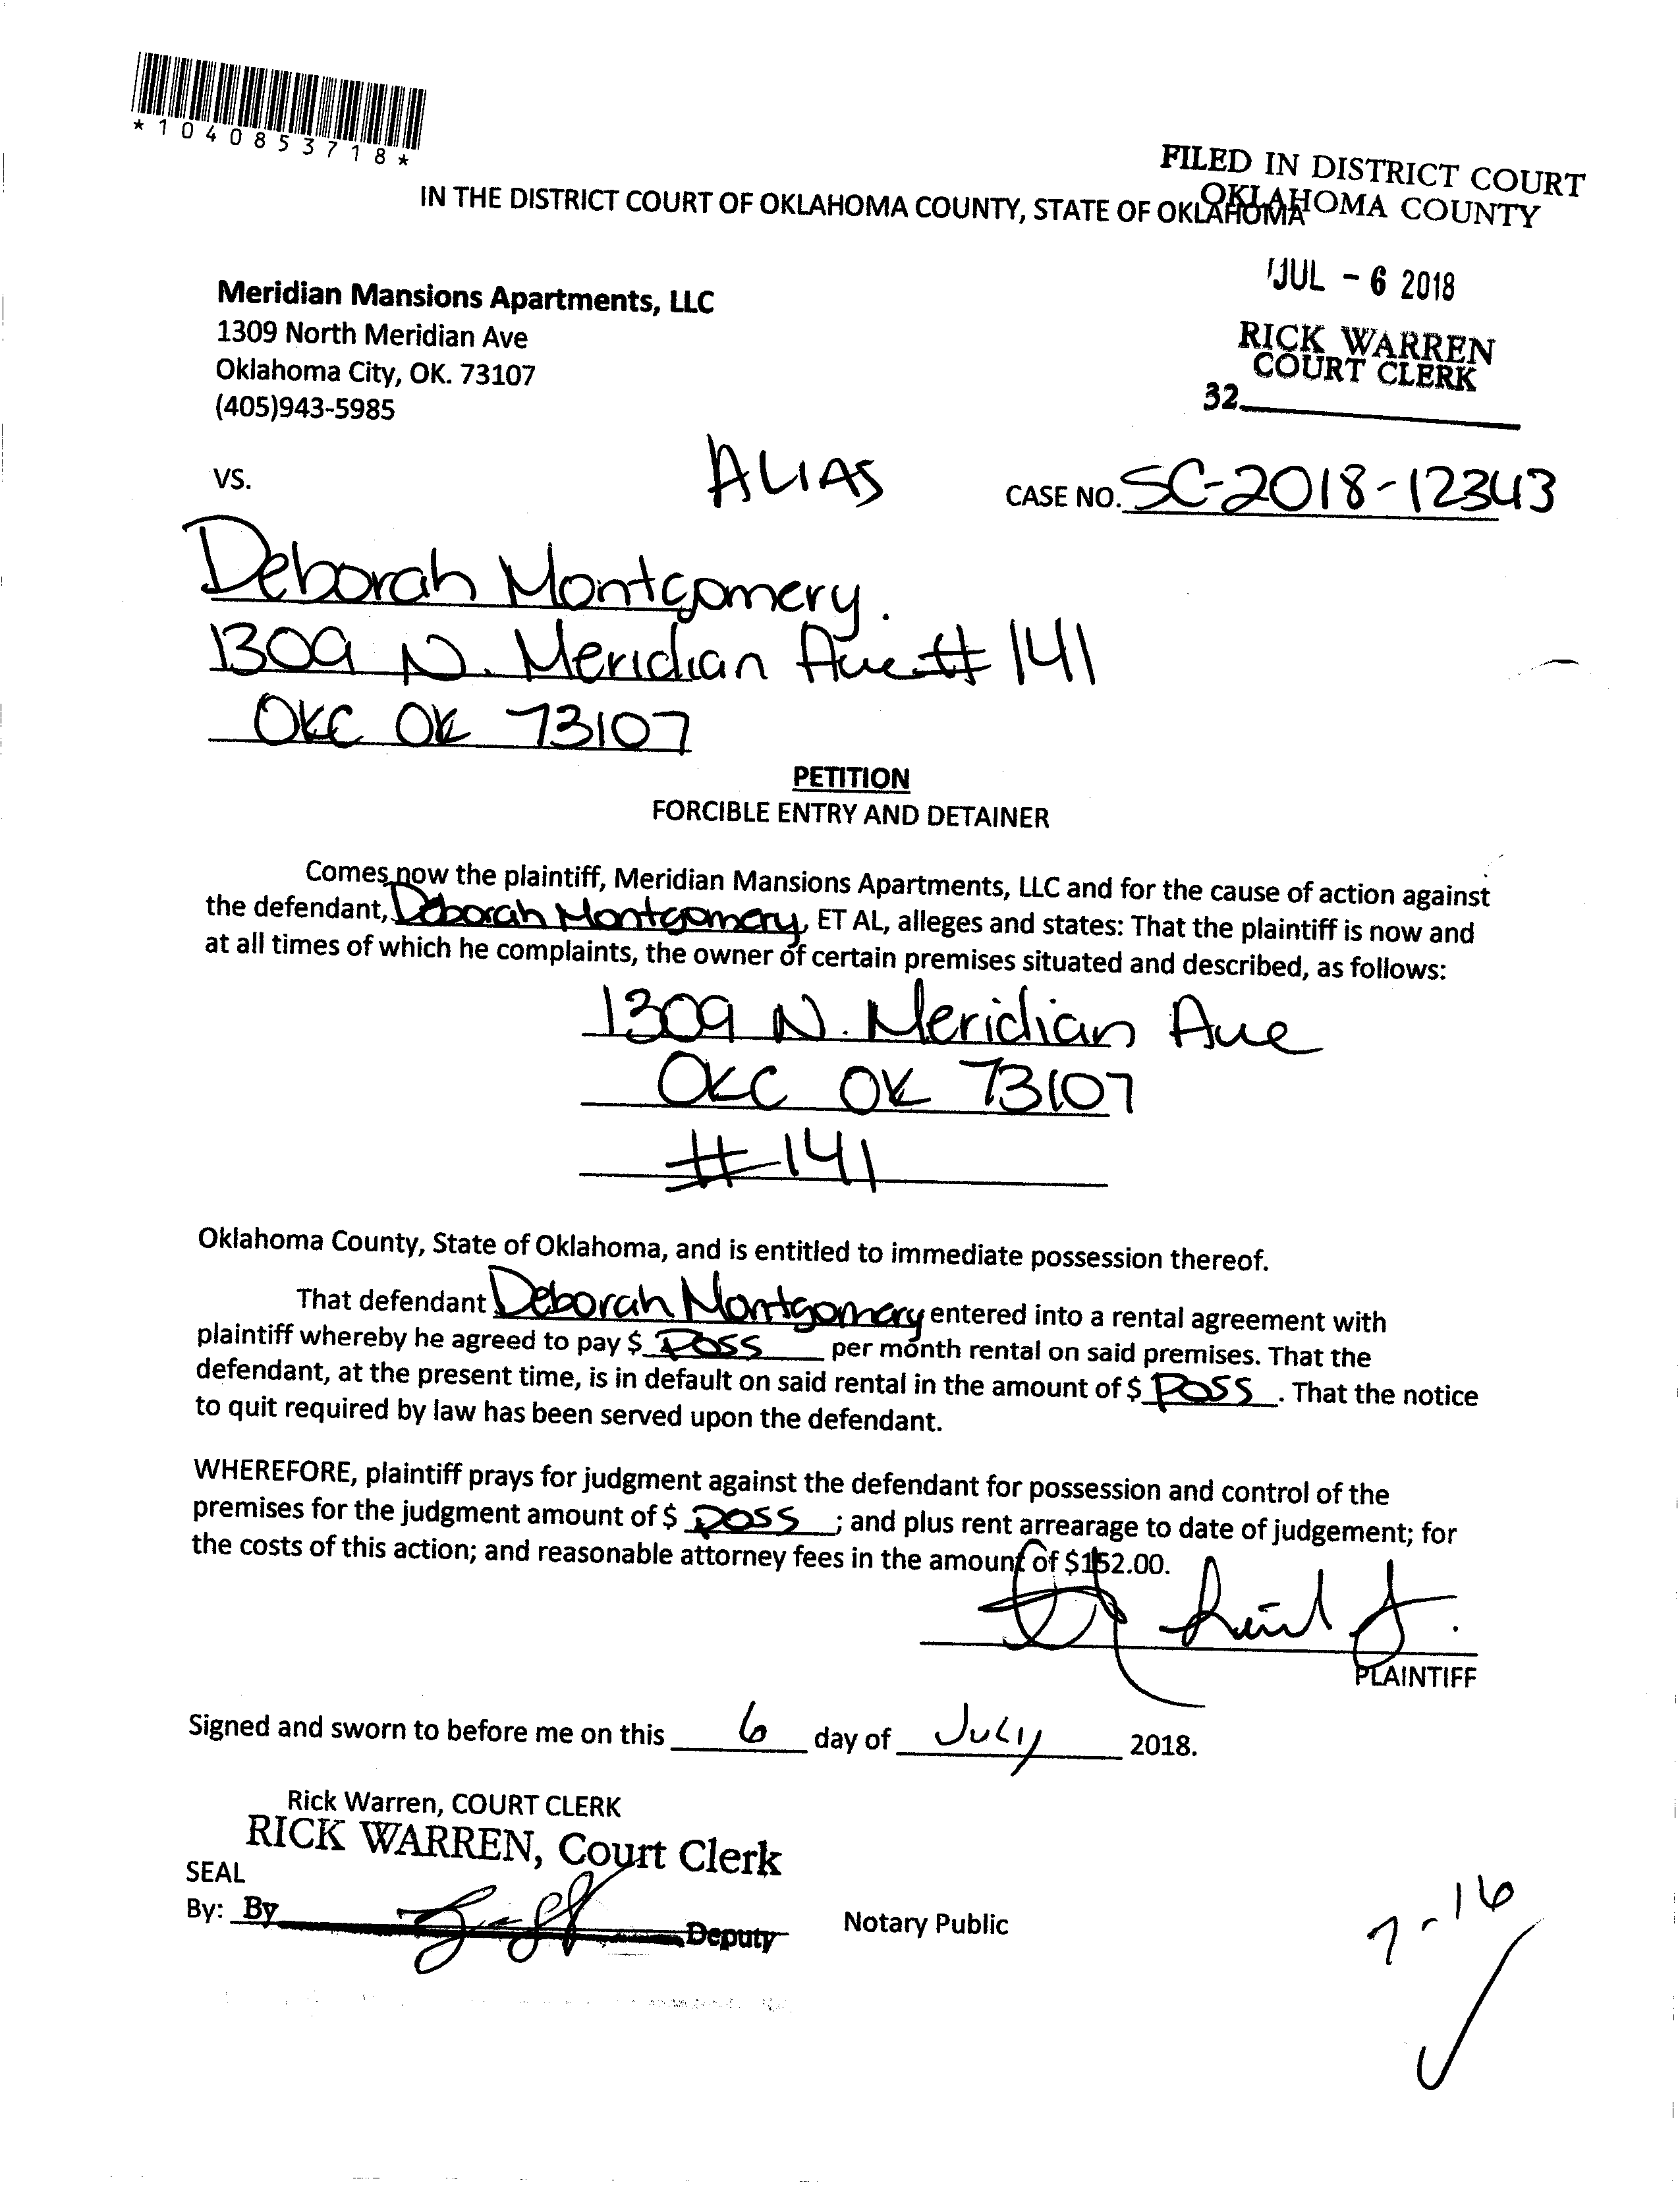 *1040853718*
FILED IN DISTRICT COURT
OKLAHOMA COUNTY
IN THE DISTRICT COURT OF OKLAHOMA COUNTY, STATE OF OKLAHOMA
JUL - 6 2018
Meridian Mansions Apartments, LLC
1309 North Meridian Ave
Oklahoma City, OK. 73107
(405)943-5985
RICK WARREN
COURT CLERK
32
VS.
ALIAS
CASE NO. SC-2018-12343
Deborah Montgomery.
1309 N. Meridian Ave # 141
OKC OK 73107
PETITION
FORCIBLE ENTRY AND DETAINER
Comes now the plaintiff, Meridian Mansions Apartments, LLC and for the cause of action against
the defendant, Deborah Montgomery, ET AL, alleges and states: That the plaintiff is now and
at all times of which he complaints, the owner of certain premises situated and described, as follows:
1309 N. Meridian Ave
OKC OK 73107
# 141
Oklahoma County, State of Oklahoma, and is entitled to immediate possession thereof.
That defendant Deborah Montgomery entered into a rental agreement with
plaintiff whereby he agreed to pay $ Poss per month rental on said premises. That the
defendant, at the present time, is in default on said rental in the amount of $ Poss. That the notice
to quit required by law has been served upon the defendant.
WHEREFORE, plaintiff prays for judgment against the defendant for possession and control of the
premises for the judgment amount of $ Poss; and plus rent arrearage to date of judgement; for
the costs of this action; and reasonable attorney fees in the amount of $152.00.
PLAINTIFF
Signed and sworn to before me on this 6 day of July 2018.
Rick Warren, COURT CLERK
RICK WARREN, Court Clerk
SEAL
By: By Deputy
Notary Public
7-16